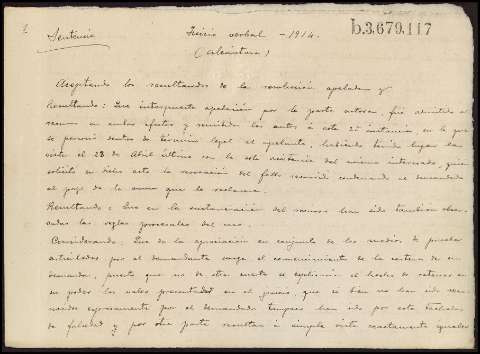 Sentencia
Juicio verbal - 1914.
b.3.679.117
(Alcántara)
Aceptando los resultandos de la resolución apelada y
Resultando: Que interpuesta apelación por la parte actora, fué admitido el
recurso en ambos efectos y recibidos los autos á esta 2ª instancia en la que
se personó dentro de término legal el apelante, habiendo tenido lugar la
vista el 28 de Abril último con la sola asistencia del mismo interesado, quien
solicitó en dicho acto la revocación del fallo recurrido condenando al demandado
al pago de la suma que le reclama.
Resultando: Que en la sustanciación del recurso han sido también obser-
vadas las reglas procesales del caso.
Considerando: Que de la apreciación en conjunto de los medios de prueba
articulados por el demandante surge el convencimiento de la certeza de su
demanda, puesto que no de otra suerte se explicaría el hecho de retener en
su poder los vales presentados en el juicio, que si bien no han sido reco-
nocidos expresamente por el demandado tampoco han sido por este tachados
de falsedad y por otra parte resultan á simple vista exactamente iguales